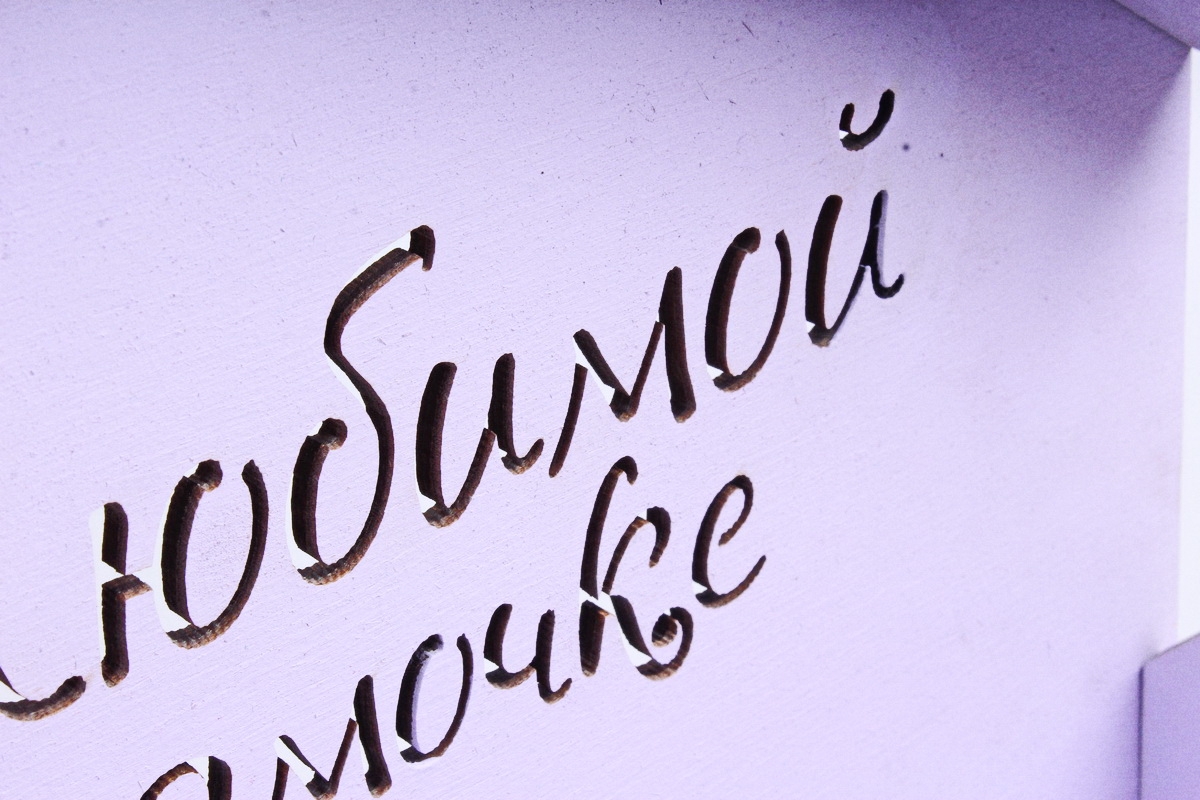 Любимой
мамочке